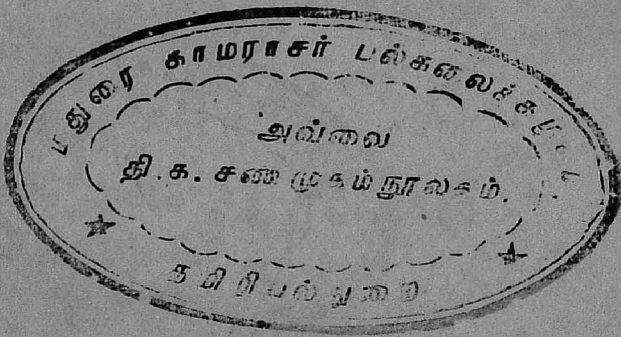 மதுரை காமராசர் பல்கலைக்கழகம்
அவ்வை
தி.க. சண்முகம் நூலகம்.
தமிழியல் துறை